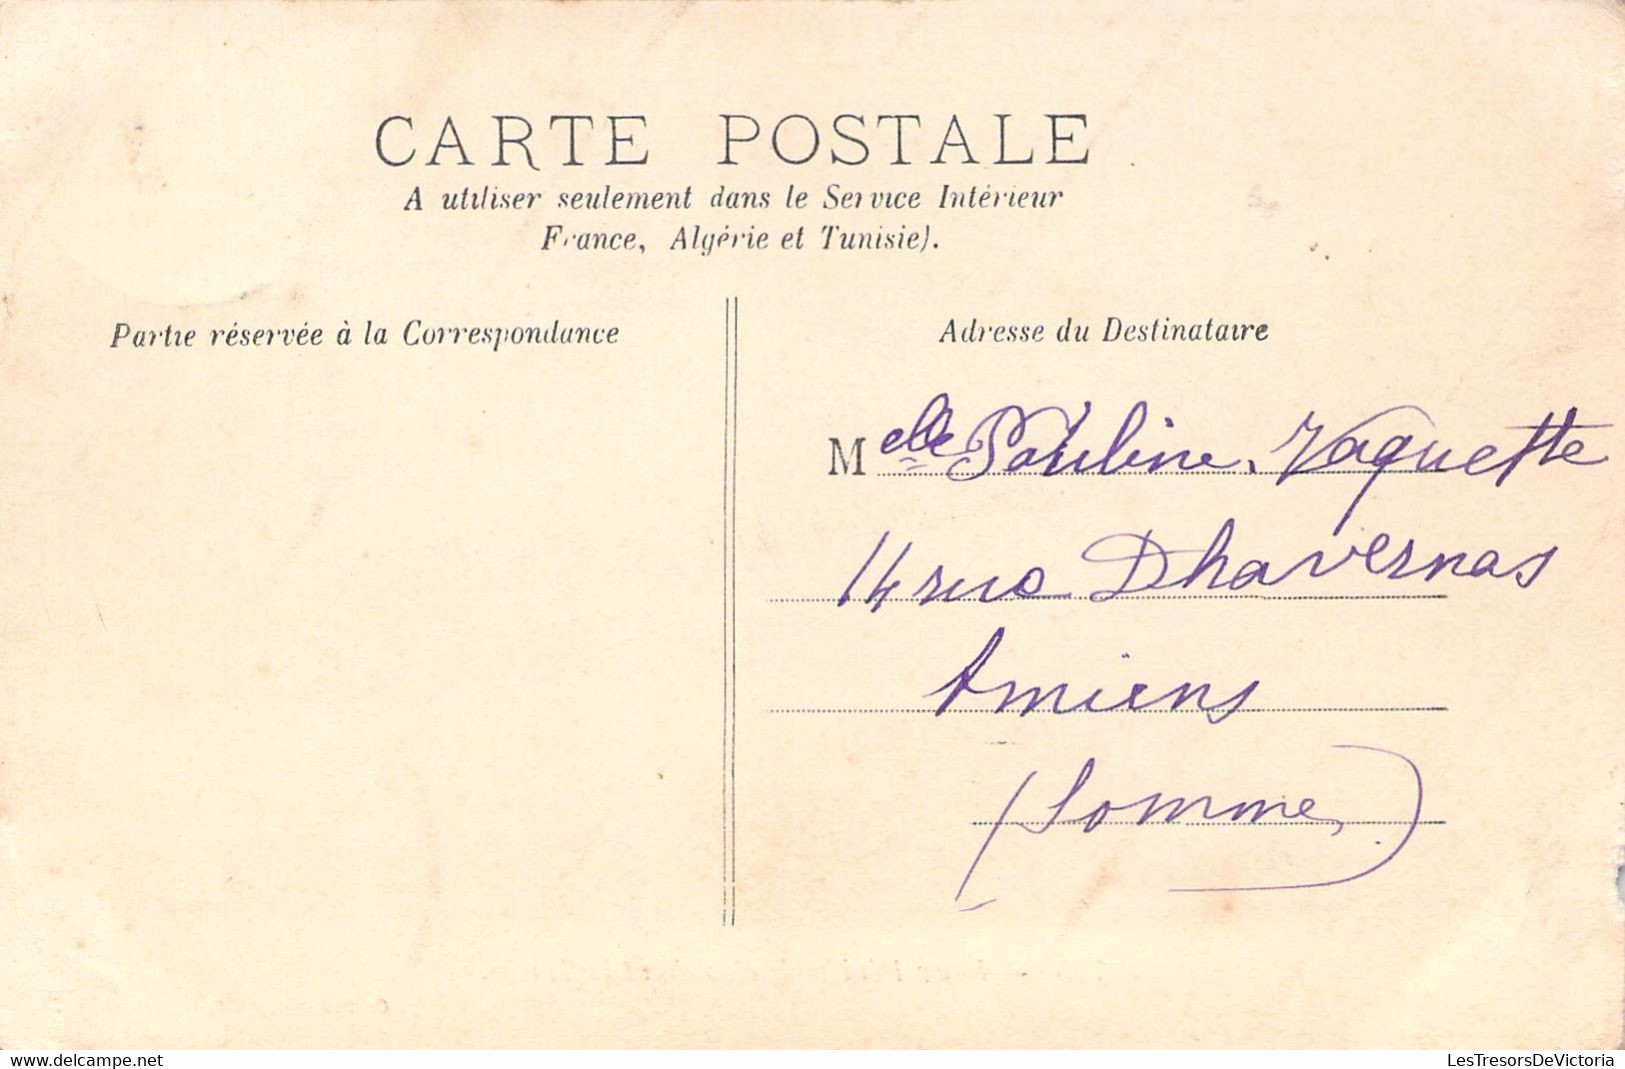 CARTE POSTALE
A utiliser seulement dans le Service Intérieur
France, Algérie et Tunisie).
Partie réservée à la Correspondance
Adresse du Destinataire
Melle Pauline Vaquette
14 rue Dhavernas
Amiens
(Somme)
www.delcampe.net
LesTresorsDeVictoria